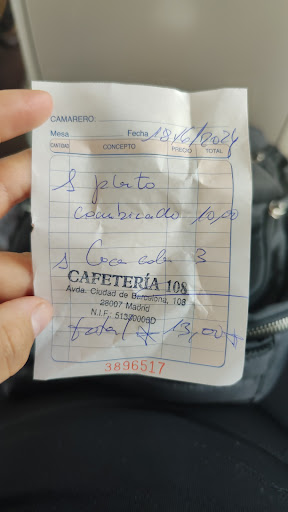 CAMARERO:
Mesa Fecha 18/6/2024
CANTIDAD CONCEPTO PRECIO TOTAL
1 plato
combinado 10,00
1 Coca cola 3
CAFETERÍA 108
Avda. Ciudad de Barcelona, 108
28007 Madrid
N.I.F.:
total 13,00
3896517